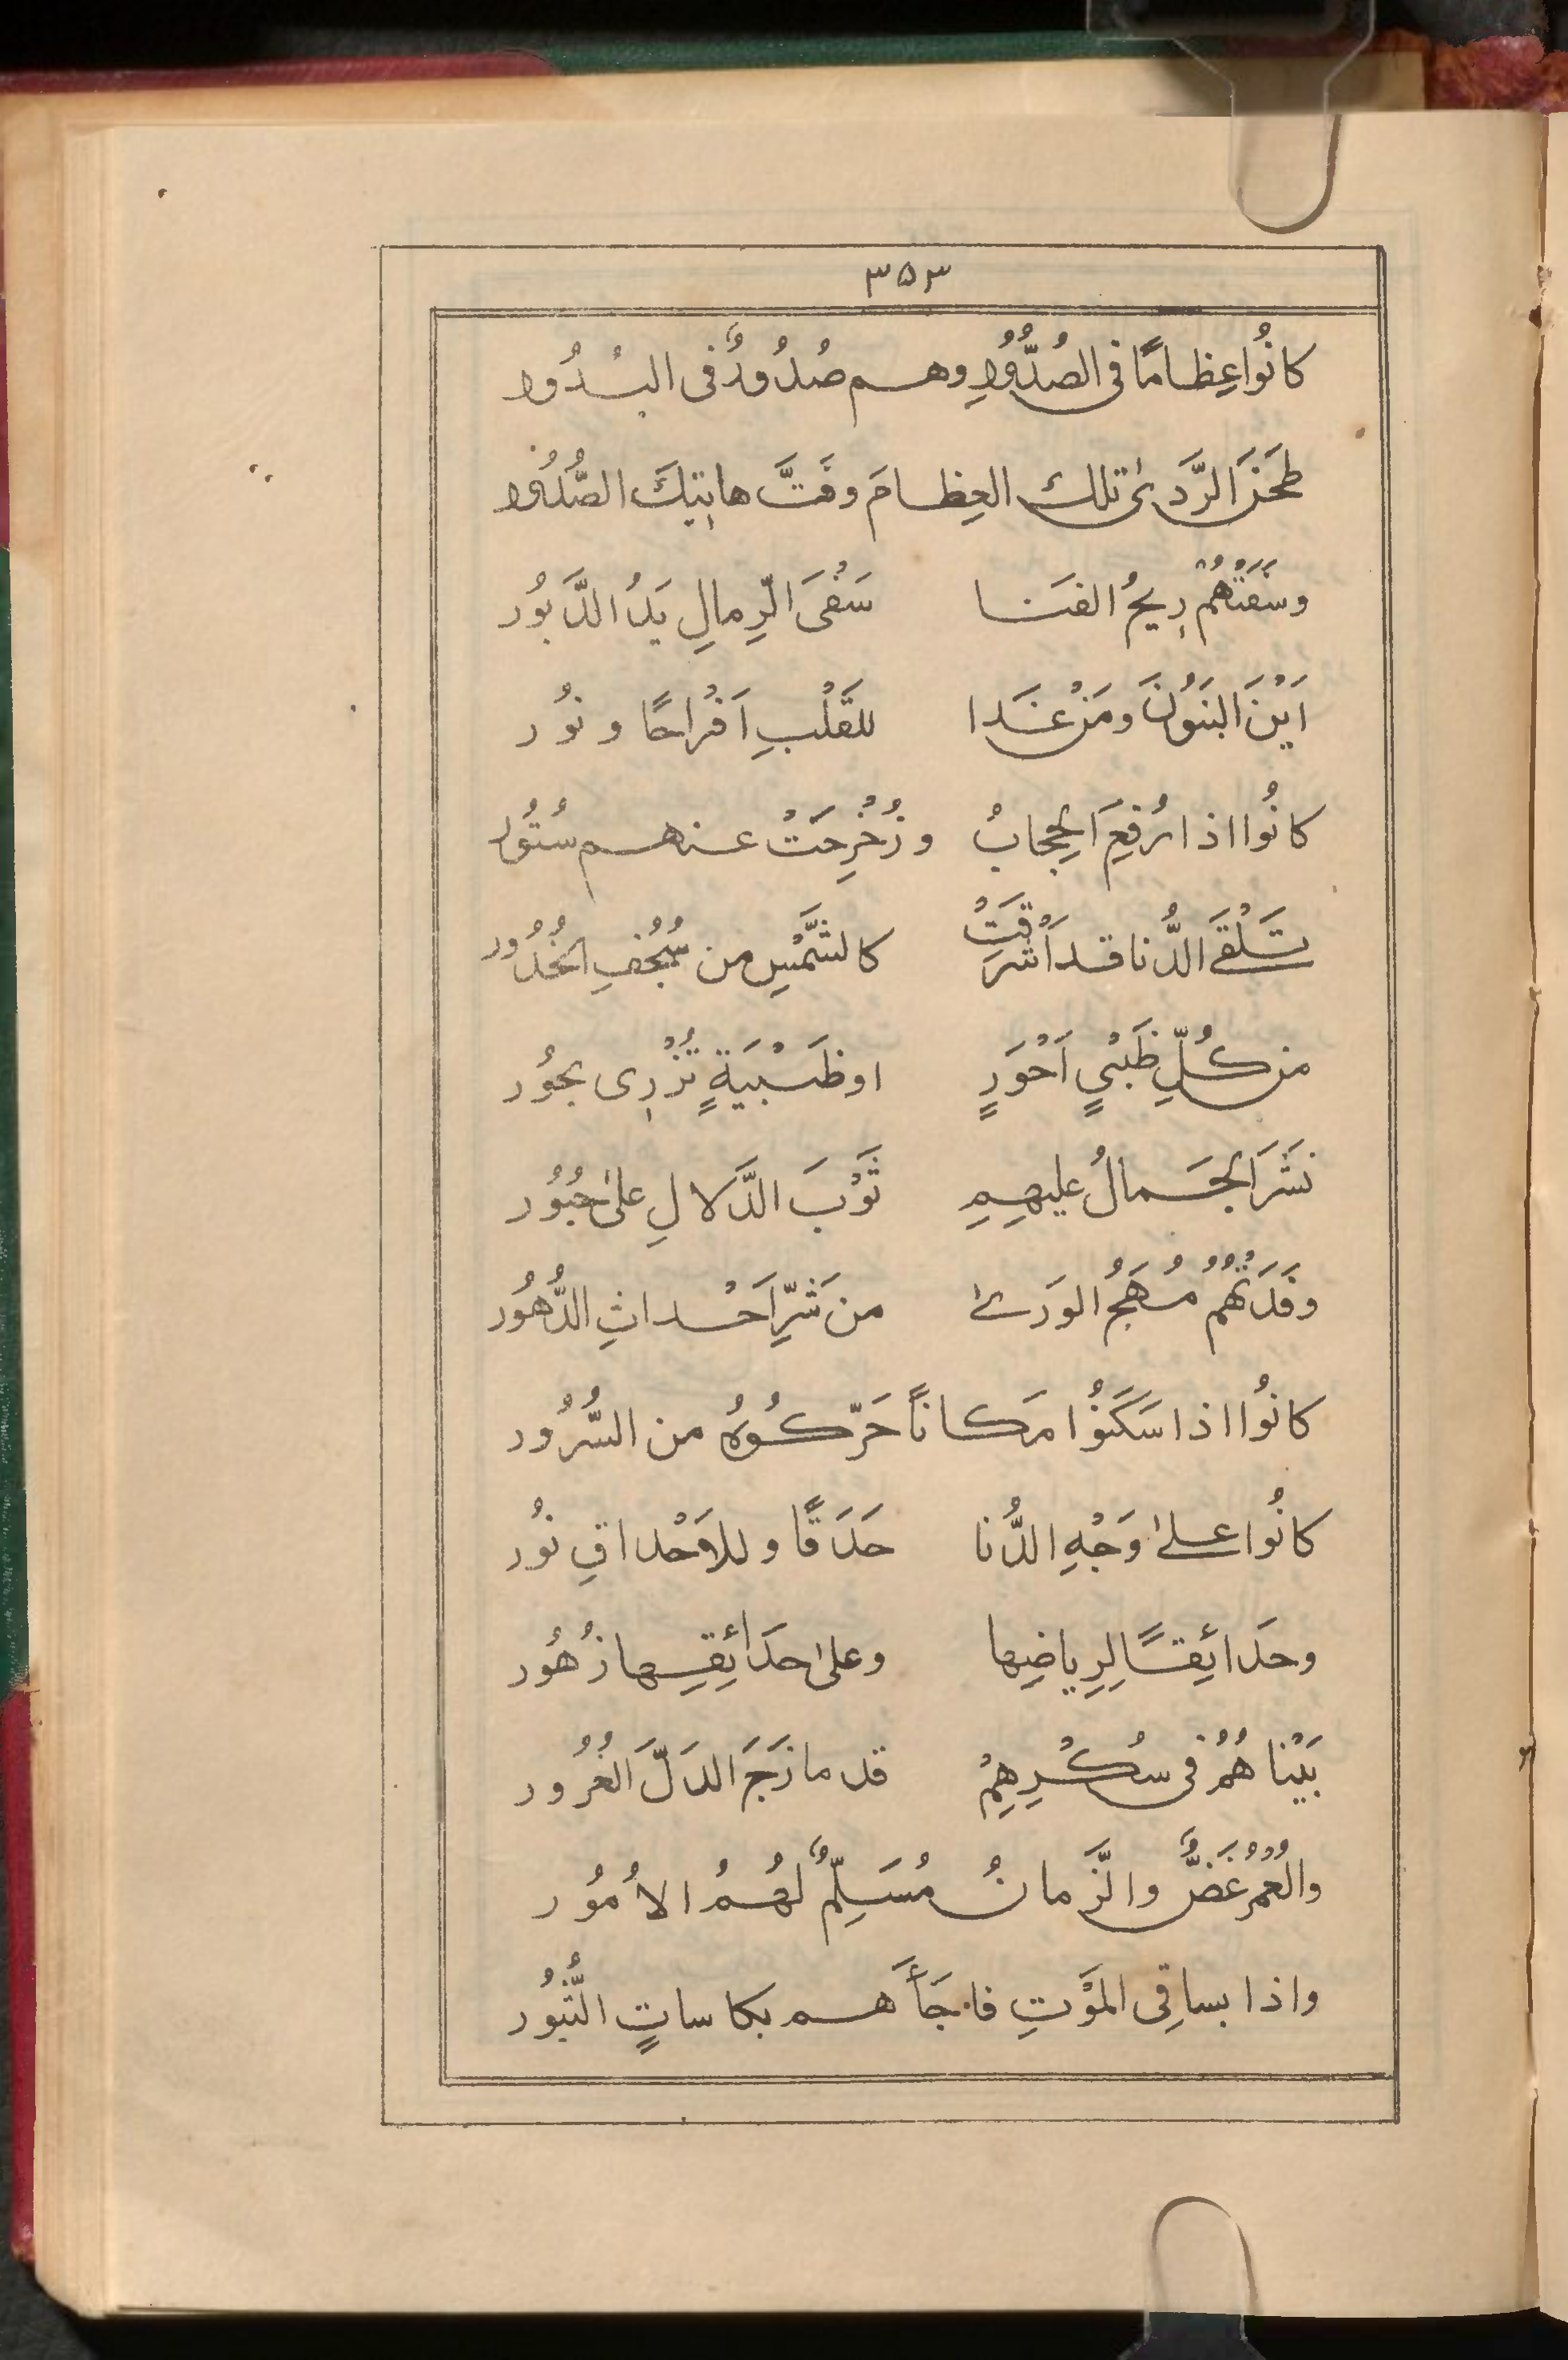 ٣٥٣
كانُوا عِظاماً فى الصُدُّورِ وهم صُدُورٌ فى البُدُور
طَحَنَ الرَّدىٰ تلك العِظامَ وفَتَّ هاتِيكَ الصُّدُور
وسَفَتْهُمُ رِيحُ الفَنا سَفْىَ الرِّمالِ يَدُ الدَّبوُر
اَيْنَ البَنَوُنَ ومَنْ غَدا للقَلْبِ اَفْراحًا ونوُر
كانُوا اذا رُفِعَ الحِجابُ وزُخْرِحَتْ عنهم سُتُور
تَلْقَى الدُّنا قد اَشْرَقَتْ كالشَّمْسِ من سُجُفِ الخُدُور
من كُلِّ ظَبْيٍ اَحْوَرٍ او ظَبْيَةٍ تُزْرِى بحوُر
نَشَرَ الجَمالُ عليهِمِ ثَوْبَ الدَّلالِ علىٰ حُبُوُر
وفَدَتْهُمُ مُهَجُ الوَرىٰ من شَرِّ اَحْداثِ الدُّهوُر
كانُوا اذا سَكَنوُا مَكاناً حَرّكُوهُ من السُّرُور
كانُوا علىٰ وَجْهِ الدُّنا حَدَقًا وللاَحْداقِ نوُر
وحَدائِقًا لِرِياضِها وعلىٰ حَدائِقِها زُهُور
بَيْنا هُمُ فى سُكْرِهِمْ قد مازَجَ الدَلَّ الغُرُور
والعُمْرُ غَضٌّ والزَّمانُ مُسَلِّمٌ لهُمُ الاُموُر
واذا بساقِى المَوْتِ فاجَأَهم بكاساتِ الثُّبوُر